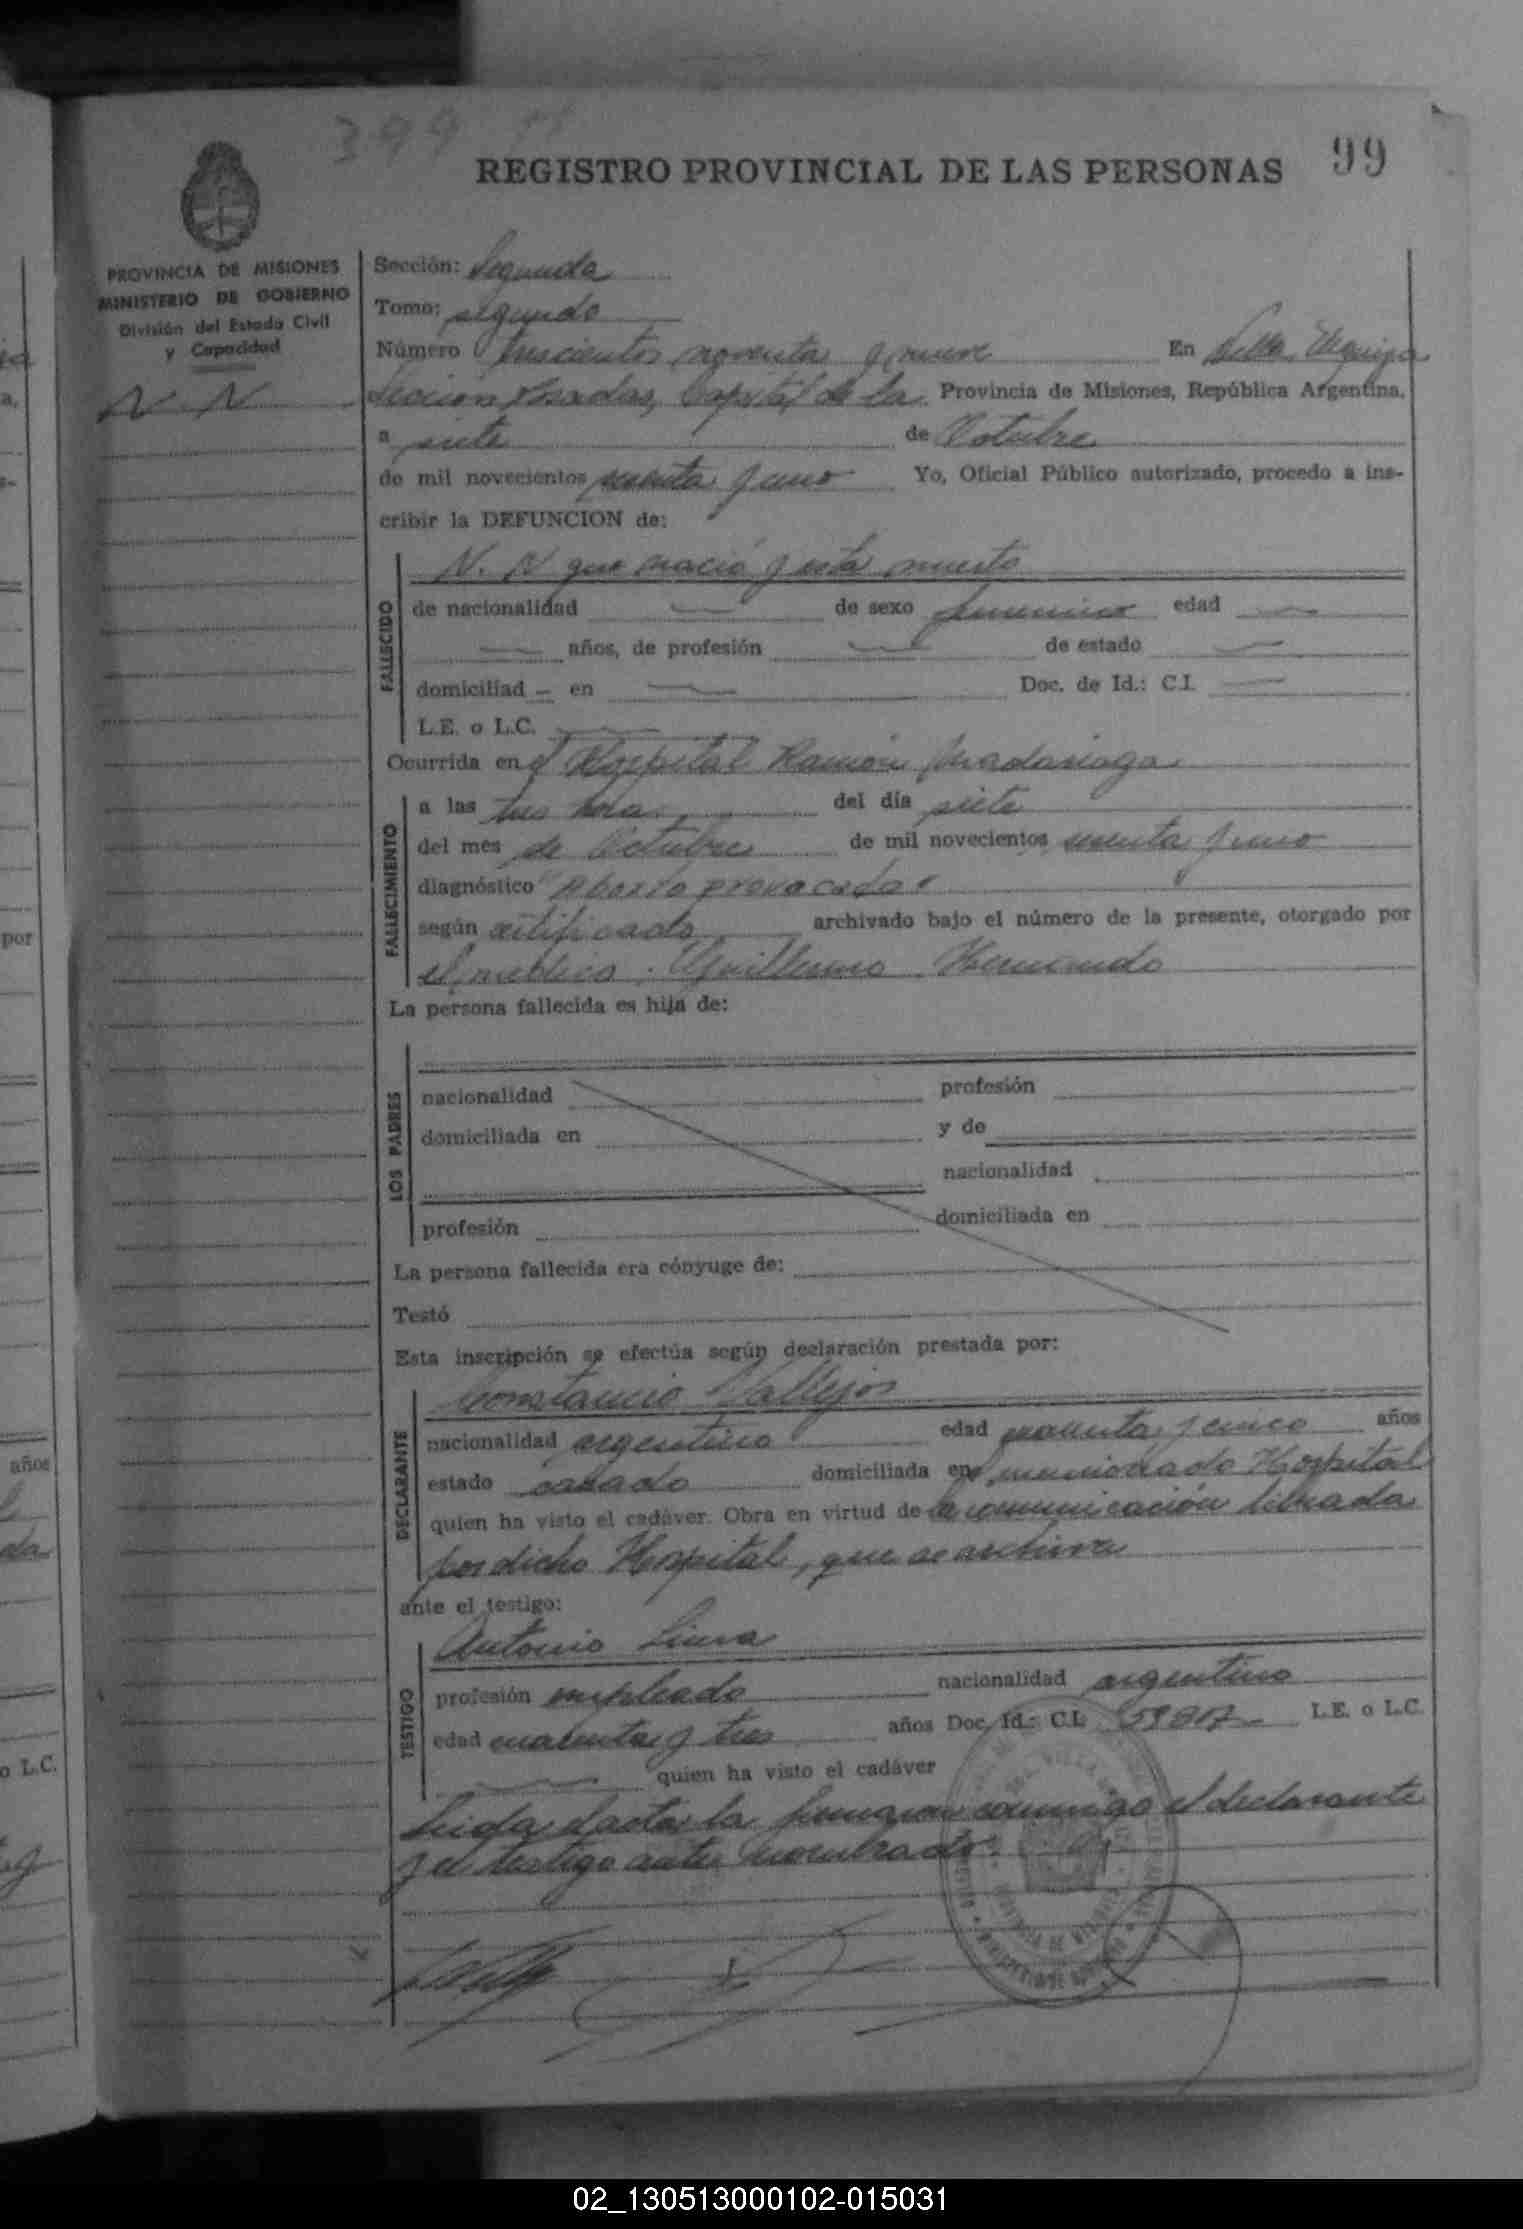 399
REGISTRO PROVINCIAL DE LAS PERSONAS 99
PROVINCIA DE MISIONES
MINISTERIO DE GOBIERNO
División del Estado Civil
y Capacidad
N N
Sección: Segunda
Tomo: segundo
Número trescientos noventa y nueve En Villa Urquiza
Sección Posadas, Capital de la Provincia de Misiones, República Argentina,
a siete de Octubre
de mil novecientos sesenta y uno Yo, Oficial Público autorizado, procedo a ins-
cribir la DEFUNCION de:
N. N que nació y está muerto
FALLECIDO
de nacionalidad — de sexo femenino edad —
— años, de profesión — de estado —
domiciliad — en — Doc. de Id.: C.I. —
L.E. o L.C. —
Ocurrida en el Hospital Ramón Madariaga
FALLECIMIENTO
a las tres hora del día siete
del mes de Octubre de mil novecientos sesenta y uno
diagnóstico "Aborto provocado"
según certificado archivado bajo el número de la presente, otorgado por
el médico Guillermo Hernando
La persona fallecida es hija de:
LOS PADRES
nacionalidad profesión
domiciliada en y de
nacionalidad
profesión domiciliada en
La persona fallecida era cónyuge de:
Testó
Esta inscripción se efectúa según declaración prestada por:
Constancio Vallejos
DECLARANTE
nacionalidad argentino edad cuarenta y cinco años
estado casado domiciliada en mencionado Hospital
quien ha visto el cadáver. Obra en virtud de la comunicación librada
por dicho Hospital, que se archiva
ante el testigo:
Antonio Lima
TESTIGO
profesión empleado nacionalidad argentino
edad cuarenta y tres años Doc. Id.: C.I. L.E. o L.C.
— quien ha visto el cadáver
Leida el acta la firmaron conmigo el declarante
y el testigo antes nombrado.
02_130513000102-015031